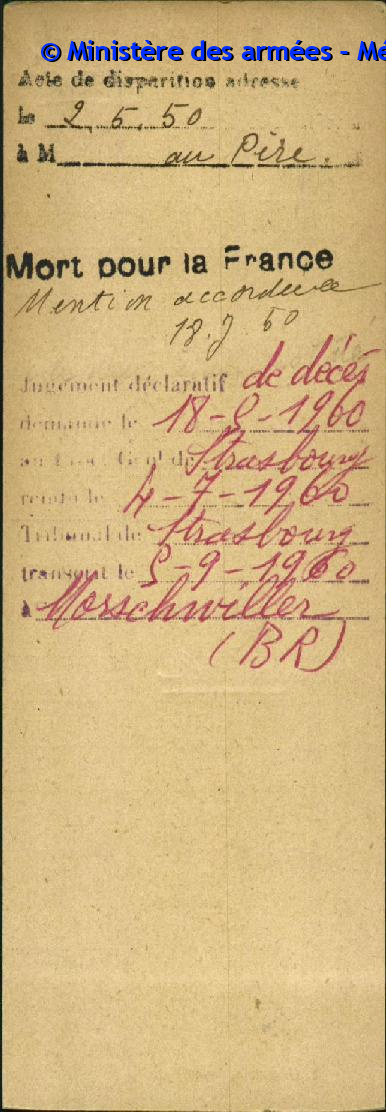 © Ministère des armées - Mé
Acte de disparition adresse
le 2.5.50
à M au Père.
Mort pour la France
Mention accordée
18.7.50
Jugement déclaratif de décès
demandé le 18-2-1960
au Proc. Génl de Strasbourg
rendu le 4-7-1960
Tribunal de Strasbourg
transcrit le 5-9-1960
à Morschwiller
(BR)